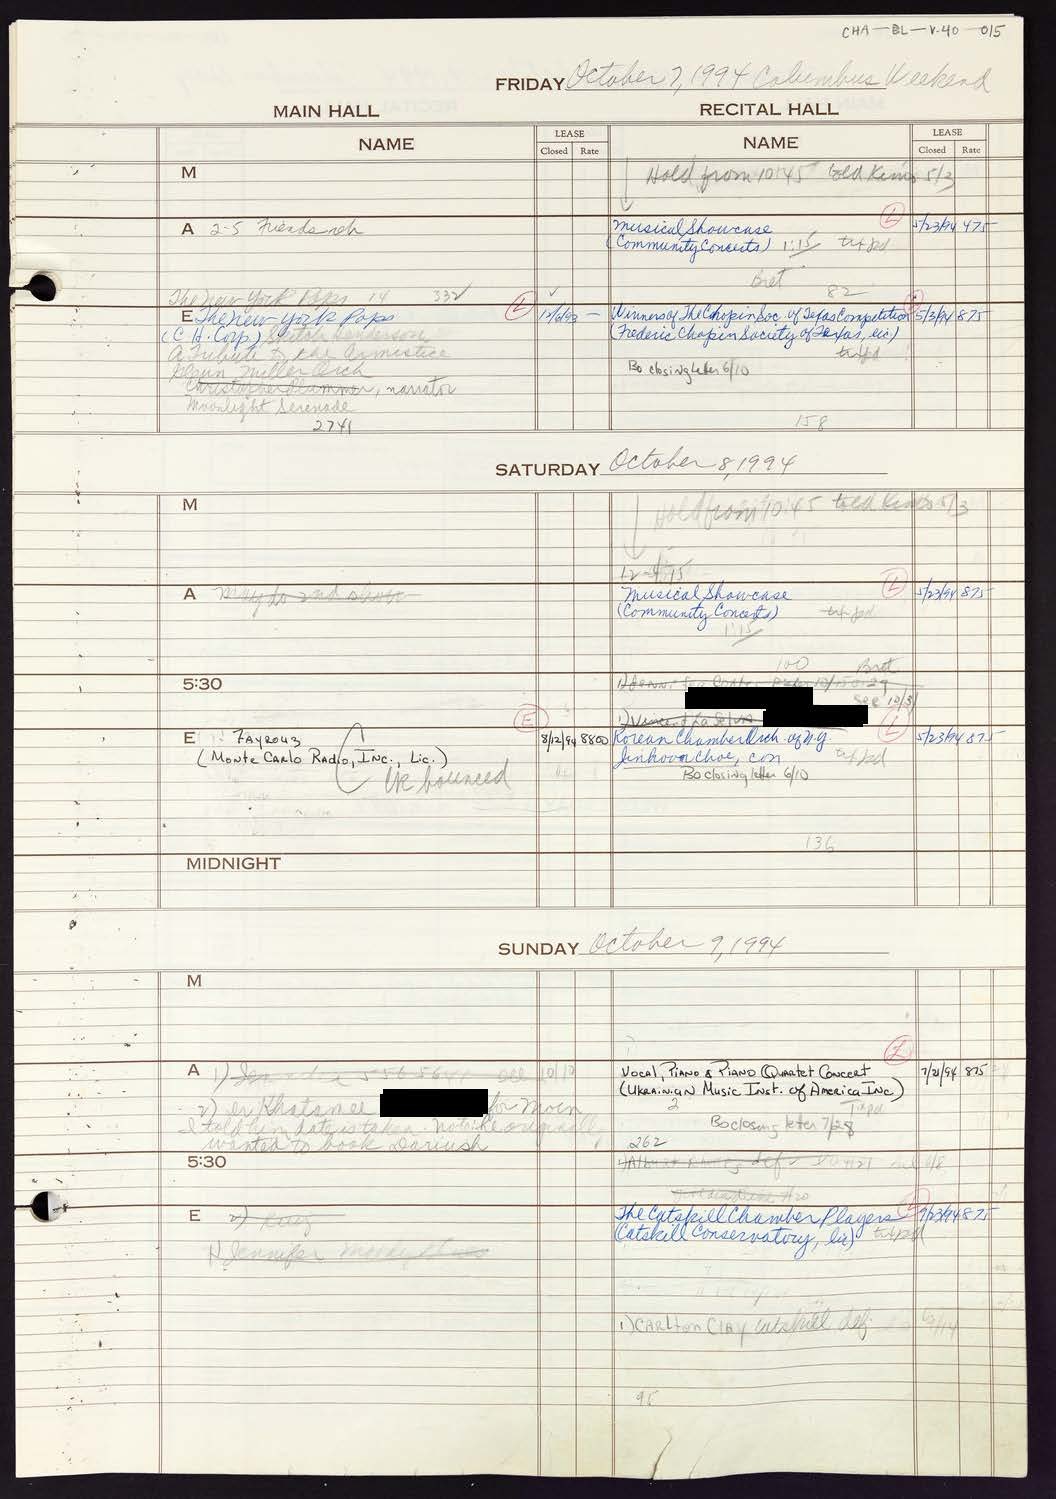 CHA-BL-V.40-015
FRIDAY October 7, 1994 Columbus Weekend
MAIN HALL
RECITAL HALL
NAME
LEASE
Closed Rate
NAME
LEASE
Closed Rate
M
Hold from 10:45 told 5/3
A 2-5 Friends reh
Musical Showcase L 5/23/94 475-
(Community Concerts) 1:15
Bret
The New York Pops 14 332
82
E The New York Pops L 12/6/93 -
(C.H. Corp.) Skitch Henderson
A Tribute to the Armistice
Glenn Miller Orch
Christopher Plummer, narrator
Moonlight Serenade
2741
Winners of The Chopin Soc. of Texas Competition L 5/3/94 875
(Frederic Chopin Society of Texas, lic)
Bo closing letter 6/10
158
SATURDAY October 8, 1994
M
Hold from 10:45 told 5/3
12-4:15
A May be 2nd show
Musical Showcase L 5/23/94 875-
(Community Concerts)
1:15
100 Bret
5:30
see 10/3
1) Vincent La Selva
E Fayrouz E 8/12/94 8800
(Monte Carlo Radio, Inc., Lic.)
CK bounced
Korean Chamber Orch. of N.Y. L 5/23/94 875-
Jinkown Choe, con
Bo closing letter 6/10
136
MIDNIGHT
SUNDAY October 9, 1994
M
A 1) see 10/10
2) Dr Khatamee for Moen
I told him date is taken. Note he originally
wanted to book Dariush
Vocal, Piano & Piano Quartet Concert L 7/21/94 875
(Ukrainian Music Inst. of America Inc)
2
Bo closing letter 7/28
262
5:30
E 2)
1) Jennifer
The Catskill Chamber Players L 9/23/94 875-
(Catskill Conservatory, lic)
1) Carlton Clay Catskill def
95